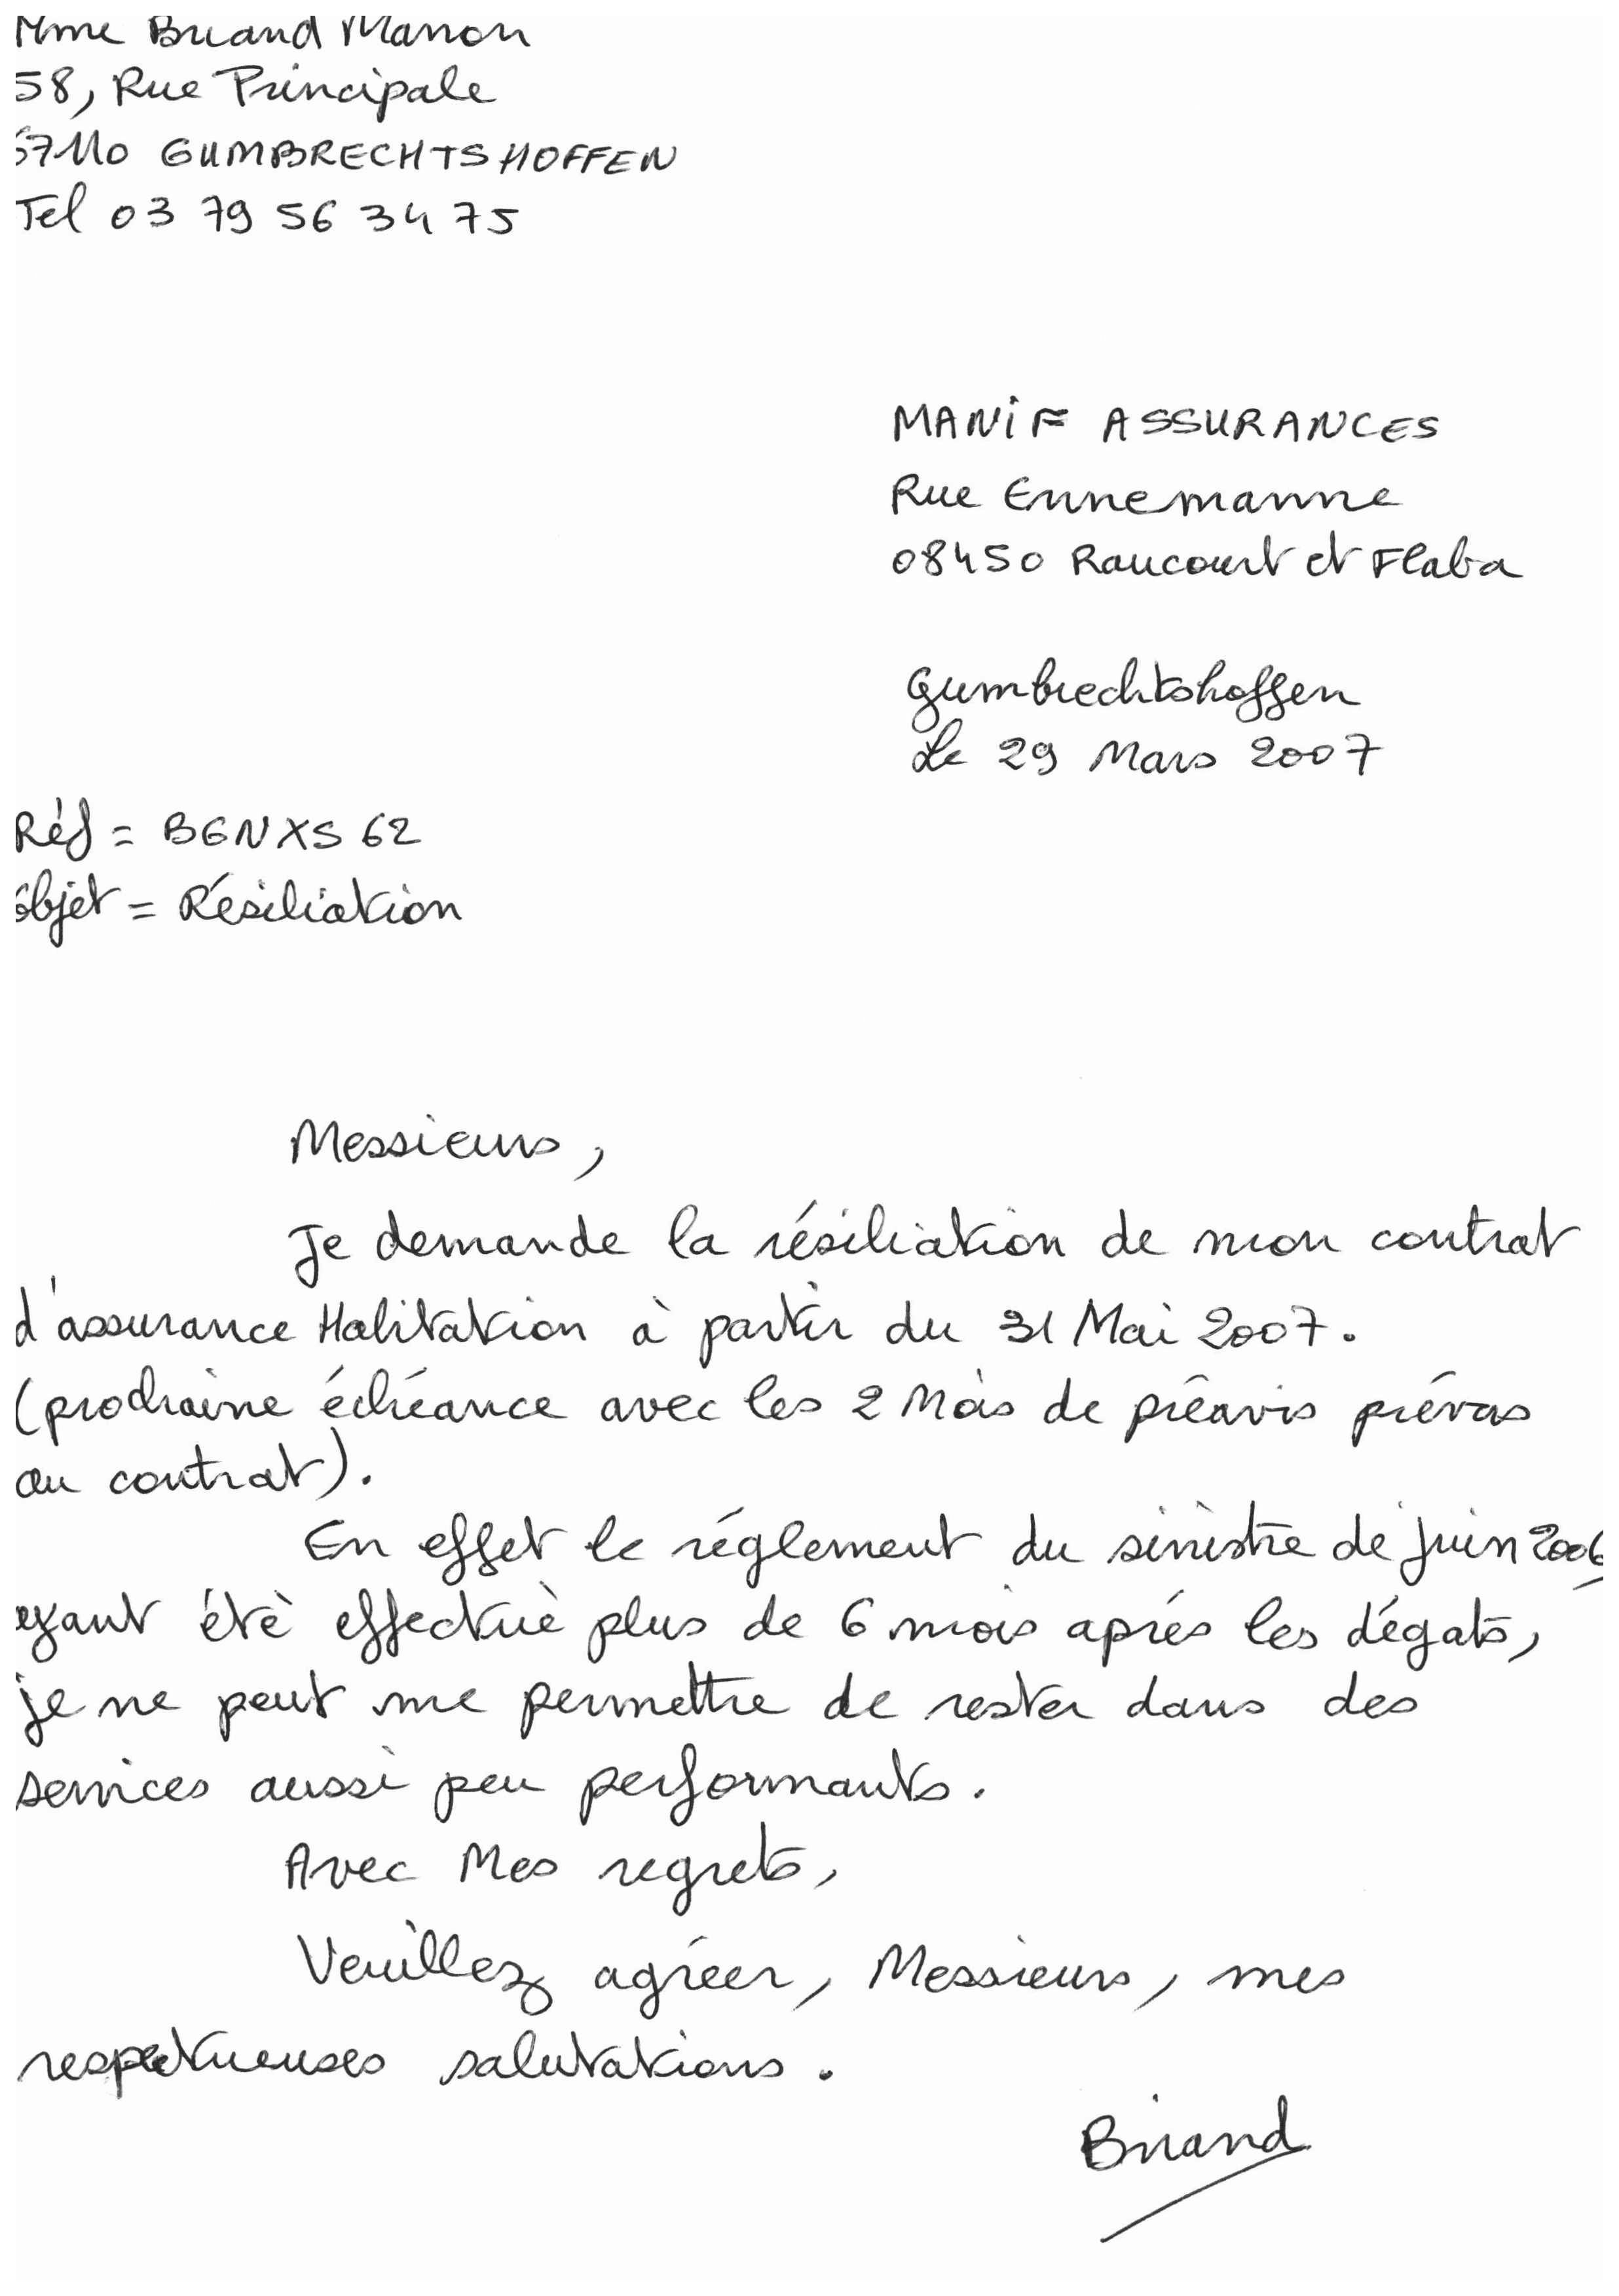 Mme Briand Manon
58, Rue Principale
67110 GUMBRECHTSHOFFEN
Tel 03 79 56 34 75
MANiF ASSURANCES
Rue Ennemanne
08450 Raucourt et Flaba
Gumbrechtshoffen
Le 29 Mars 2007
Réf = BGNXS 62
Objet = Résiliation
Messieurs,
Je demande la résiliation de mon contrat
d'assurance Habitation à partir du 31 Mai 2007.
(prochaine échéance avec les 2 Mois de préavis prévus
au contrat).
En effet le réglement du sinistre de juin 2006
ayant étè effectuè plus de 6 mois aprés les dégats,
je ne peut me permettre de rester dans des
services aussi peu performants.
Avec Mes regrets,
Veuillez agréer, Messieurs, mes
respectueuses salutations.
Briand